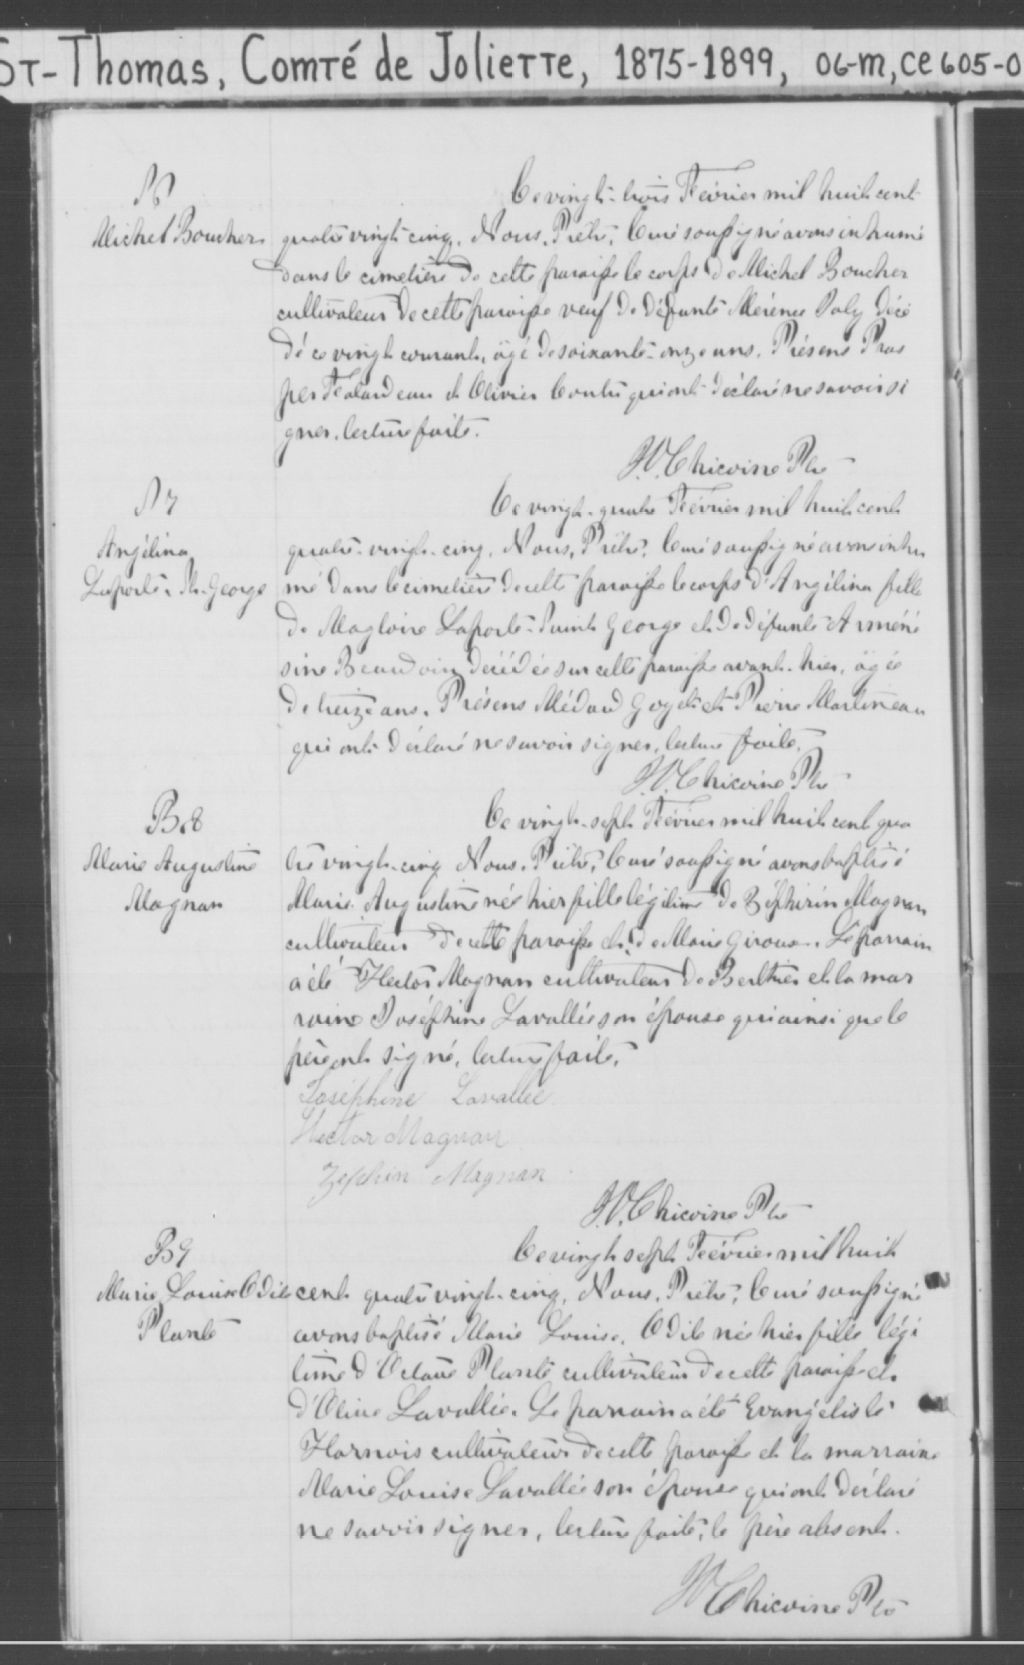 ST-Thomas, Comté de Joliette, 1875-1899, 06-M, CE605-0
S6
Michel Boucher
Ce vingt-trois Février mil huit cent
quatre vingt-cinq, Nous, Prêtre, Curé soussigné avons inhumé
dans le cimetière de cette paroisse le corps de Michel Boucher
cultivateur de cette paroisse veuf de défunte Mérence Poly décé
dé ce vingt courant, âgé de soixante-onze ans. Présens Pros
per Fealardeau et Olivier Coutu qui ont déclaré ne savoir si
gner, lecture faite.
J.O. Chicoine Ptre
S7
Angélina
Laporte-St-George
Ce vingt-quatre Février mil huit cent
quatre-vingt-cinq, Nous, Prêtre, Curé soussigné avons inhu
mé dans le cimetière de cette paroisse le corps d'Angélina fille
de Magloire Laporte-Saint George et de défunte Arméné
sine Beaudoin décédée sur cette paroisse avant-hier, âgée
de treize ans. Présens Médard Goyet et Pierre Martineau
qui ont déclaré ne savoir signer, lecture faite.
J.O. Chicoine Ptre
B.8
Marie Augustine
Magnan
Ce vingt-sept Février mil huit cent qua
tre vingt-cinq Nous, Prêtre, Curé soussigné avons baptisé
Marie Augustine née hier fille légitime de Zéphirin Magnan
cultivateur de cette paroisse et de Marie Giroux. Le parrain
a été Hector Magnan cultivateur de Berthier et la mar
raine Joséphine Lavallée son épouse qui ainsi que le
père ont signé, lecture faite.
Joséphine Lavallée
Hector Magnan
Zephin Magnan
J.O. Chicoine Ptre
B9
Marie Louise Odile
Plante
Ce vingt sept Février mil huit
cent quatre vingt-cinq, Nous, Prêtre, Curé soussigné
avons baptisé Marie Louise, Odile née hier fille légi
time d'Octave Plante cultivateur de cette paroisse et
d'Olive Lavallée. Le parrain a été Evangéliste
Harnois cultivateur de cette paroisse et la marraine
Marie Louise Lavallée son épouse qui ont déclaré
ne savoir signer, lecture faite, le père absent.
J.O. Chicoine Ptre